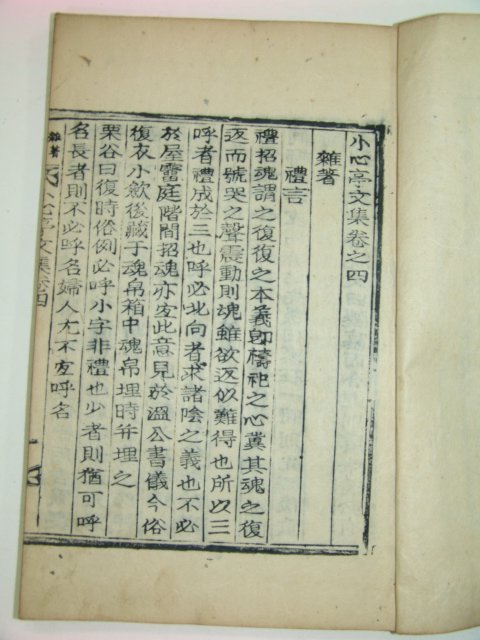 小心亭文集卷之四
雜著
禮言
禮招魂謂之復復之本義卽禱祀之心冀其魂之復
返而號哭之聲震動則魂雖欲返似難得也所以三
呼者禮成於三也呼必北向者求諸陰之義也不必
於屋霤庭階間招魂亦友此意見於溫公書儀今俗
復衣小斂後藏于魂帛箱中魂帛埋時幷埋之
栗谷曰復時俗例必呼小字非禮也少者則猶可呼
名長者則不必呼名婦人尤不友呼名
雜著
小心亭文集卷四